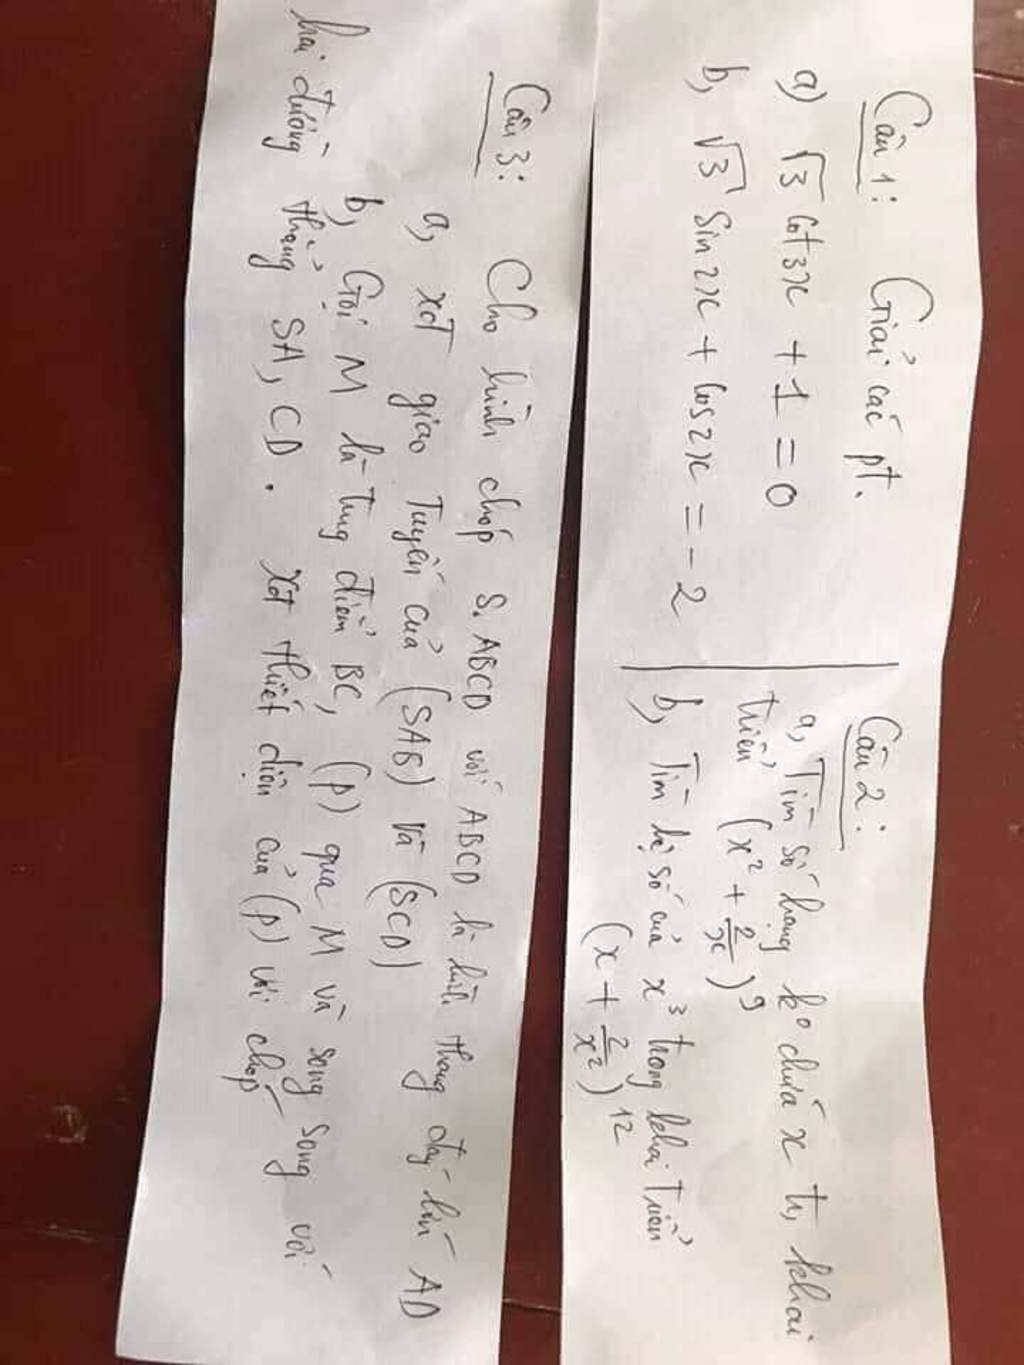 Câu 1: Giải các pt.
a) √3 cot3x + 1 = 0
b, √3 Sin2x + Cos2x = - 2
Câu 2:
a, Tìm số hạng ko chứa x tr, khai
triển (x² + 2/x)⁹
b, Tìm hệ số của x³ trong khai triển
(x + 2/x²)¹²
Câu 3: Cho hình chóp S.ABCD với ABCD là hình thang đáy lớn AD
a, xđ giao tuyến của (SAB) và (SCD)
b, Gọi M là trung điểm BC, (P) qua M và song song với
hai đường thẳng SA, CD. Xđ thiết diện của (P) với chóp